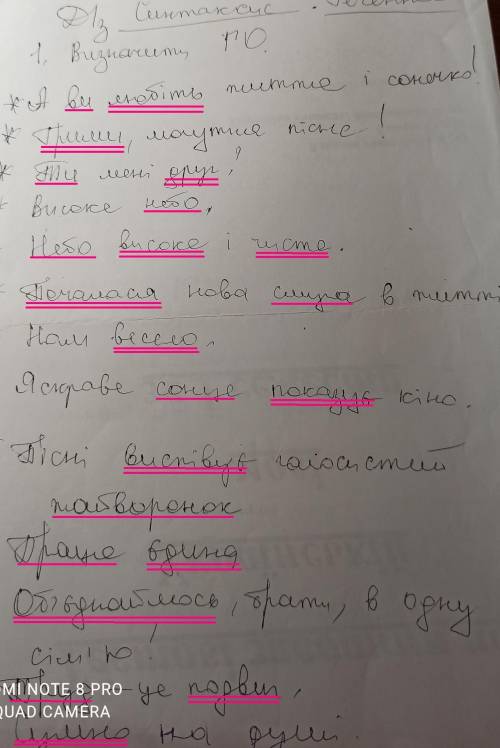 Д/з Синтаксис.
1. Визначити ГО.
* А ви любіть життя і сонечко!
* Грими, могутня пісне!
* Ти мені друг!
Високе небо.
Небо високе і чисте.
Почалася нова смуга в житті
Нам весело.
Яскраве сонце показує кіно.
Пісні виспівує голосистий
жайворонок
Праце єдина
Об'єднаймось, брати, в одну
сім'ю!
Труд - це подвиг.
Сумно на душі.
OMI NOTE 8 PRO
QUAD CAMERA